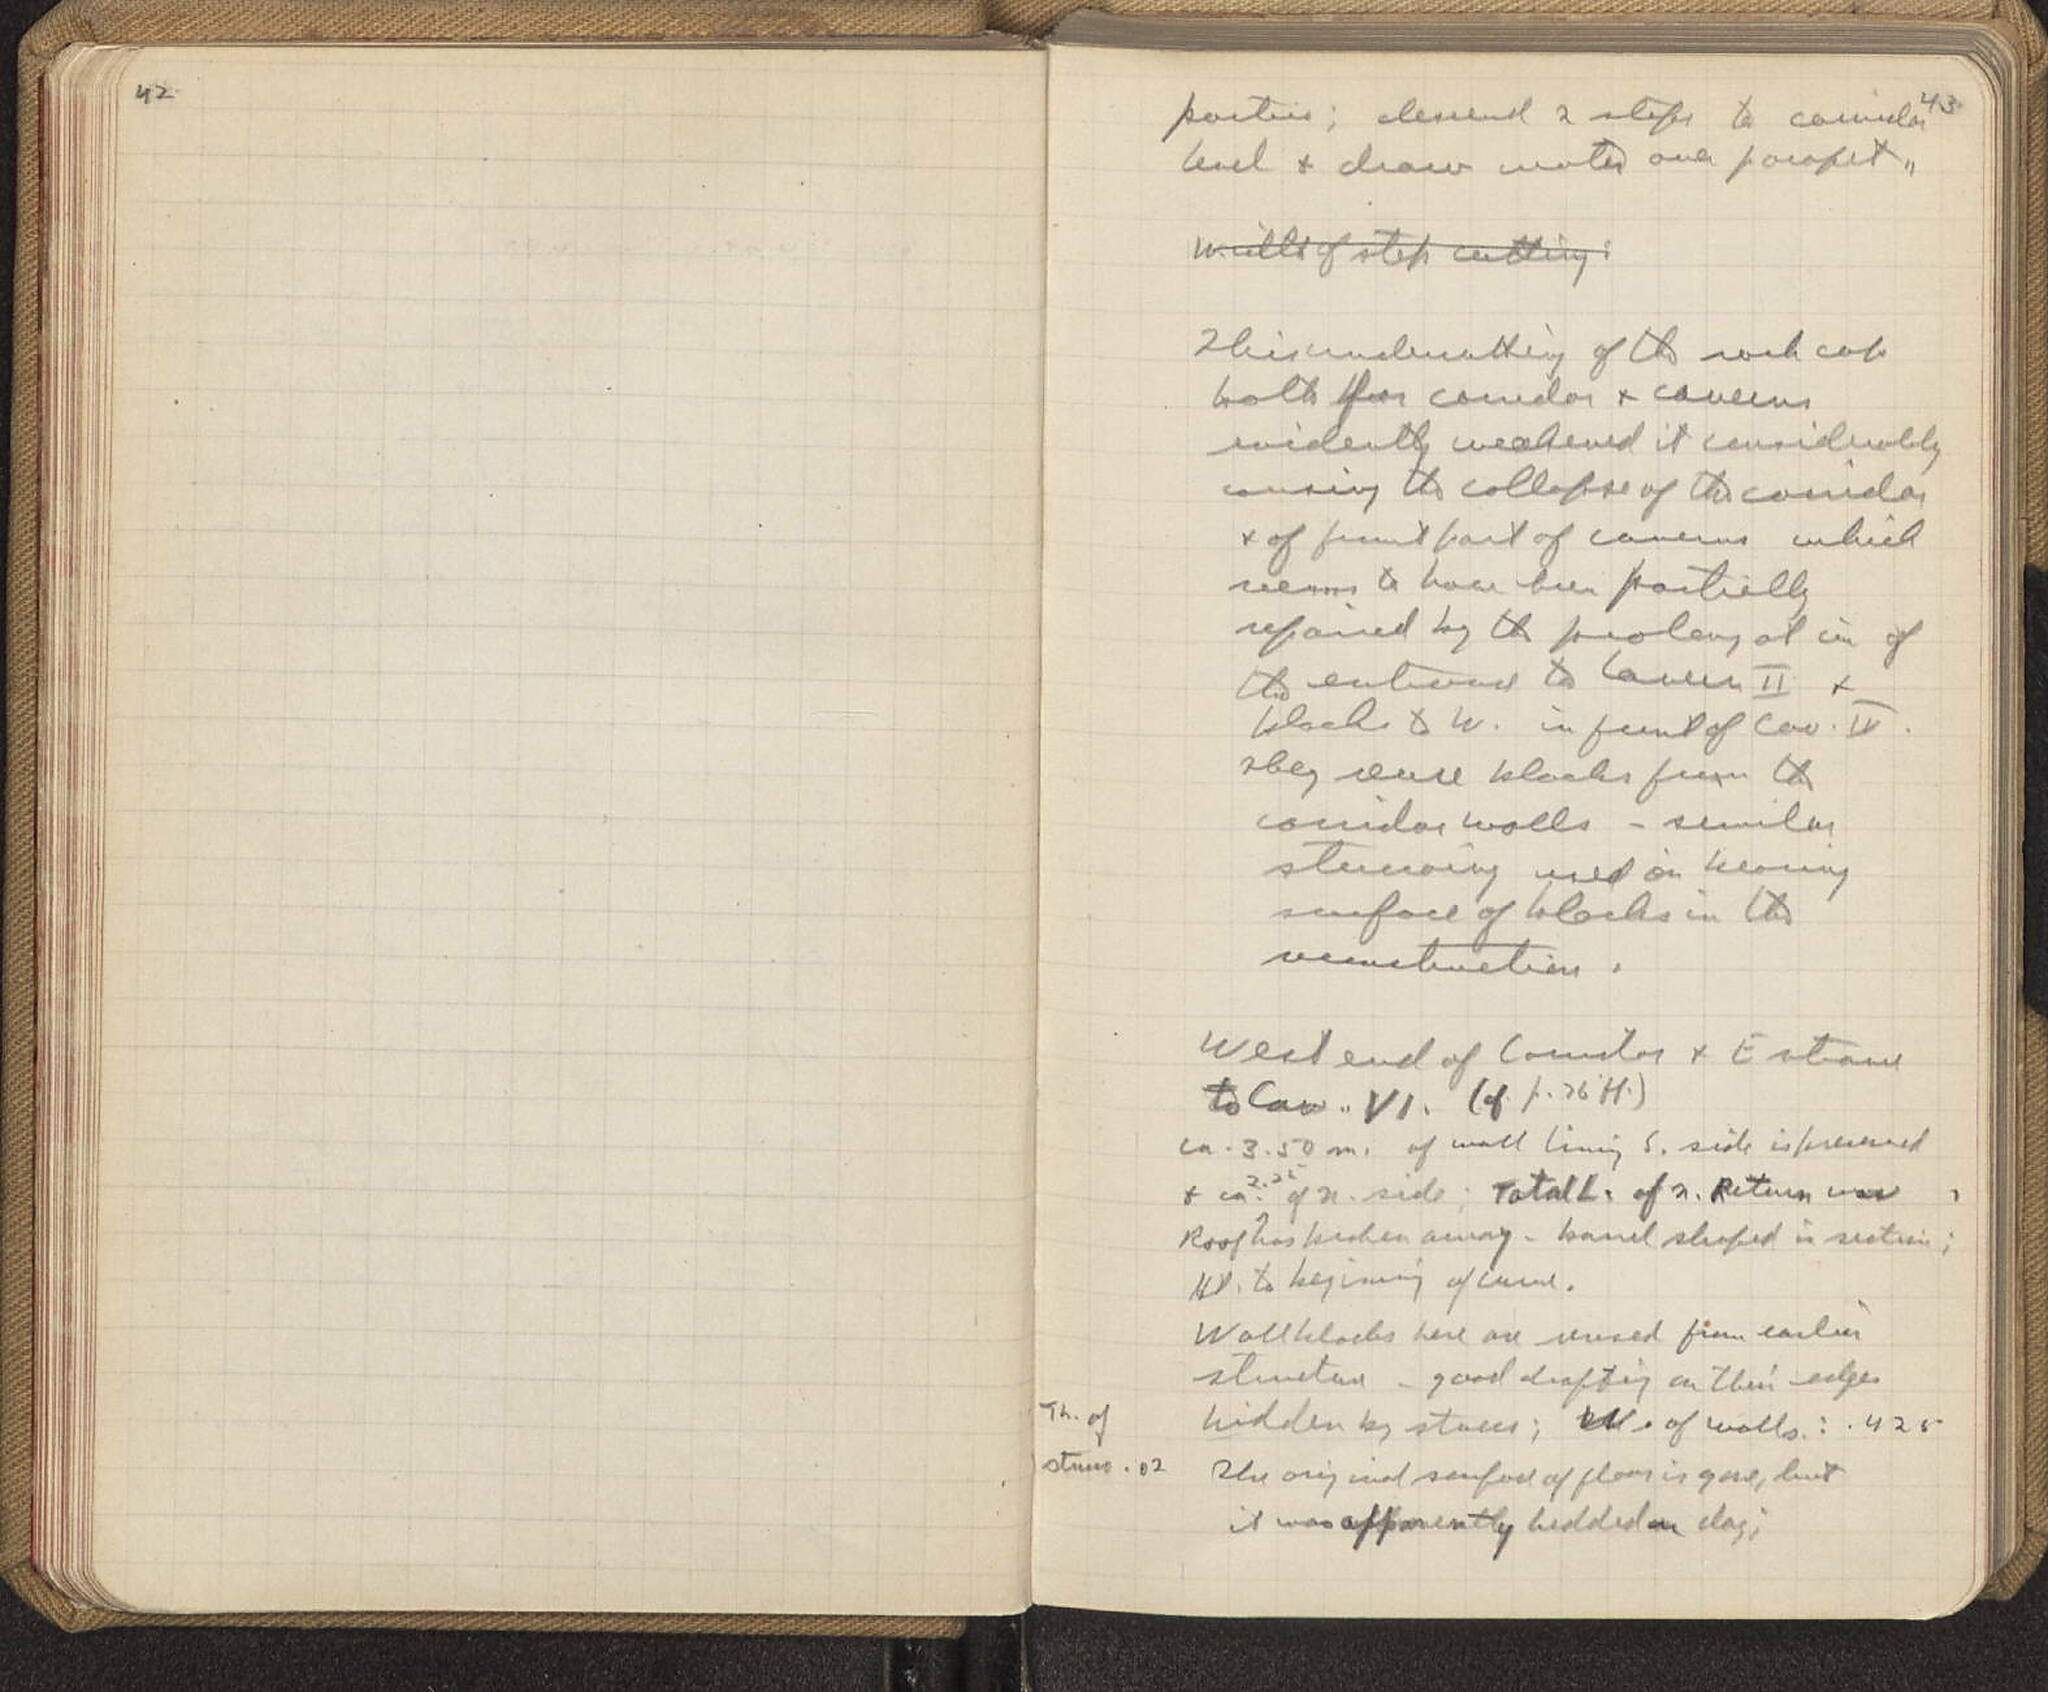 42
43
parties; descend 2 steps to corridor
level + draw water over parapet.,
Width of step cutting:
This undercutting of the rock cap
both for corridor + caverns
evidently weakened it considerably
causing the collapse of the corridor
+ of front part of caverns which
seems to have been partially
repaired by the prolongation of
the entrance to Cavern II +
blocks to W. in front of Cav. IV.
They reuse blocks from the
corridor walls - similar
stuccoing used on bearing
surface of blocks in the
reconstruction.
West end of Corridor + Entrance
to Cav.. VI. (cf. p. 26 H.)
ca. 3.50 m. of wall lining S. side is preserved
+ ca. 2.25 of N. side; Total L. of N. Return was ,
Roof has broken away - barrel shaped in section;
Ht. to beginning of curve.
Wall blocks here are reused from earlier
structure - good drafting on their edges
hidden by stucco; of walls.: .425
Th. of
stucco .02
The original surface of floor is gone, but
it was apparently bedded on clay;